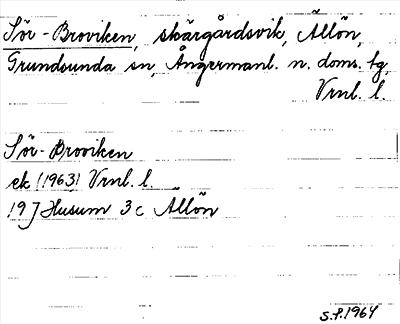 Sör-Broviken, skärgårdsvik, Ällön,
Grundsunda sn, Ångermanl. n. doms. tg,
Vrnl. l.
Sör-Broviken
ek (1963) Vrnl. l.
19 J Husum 3 c Ällön
S.P. 1964